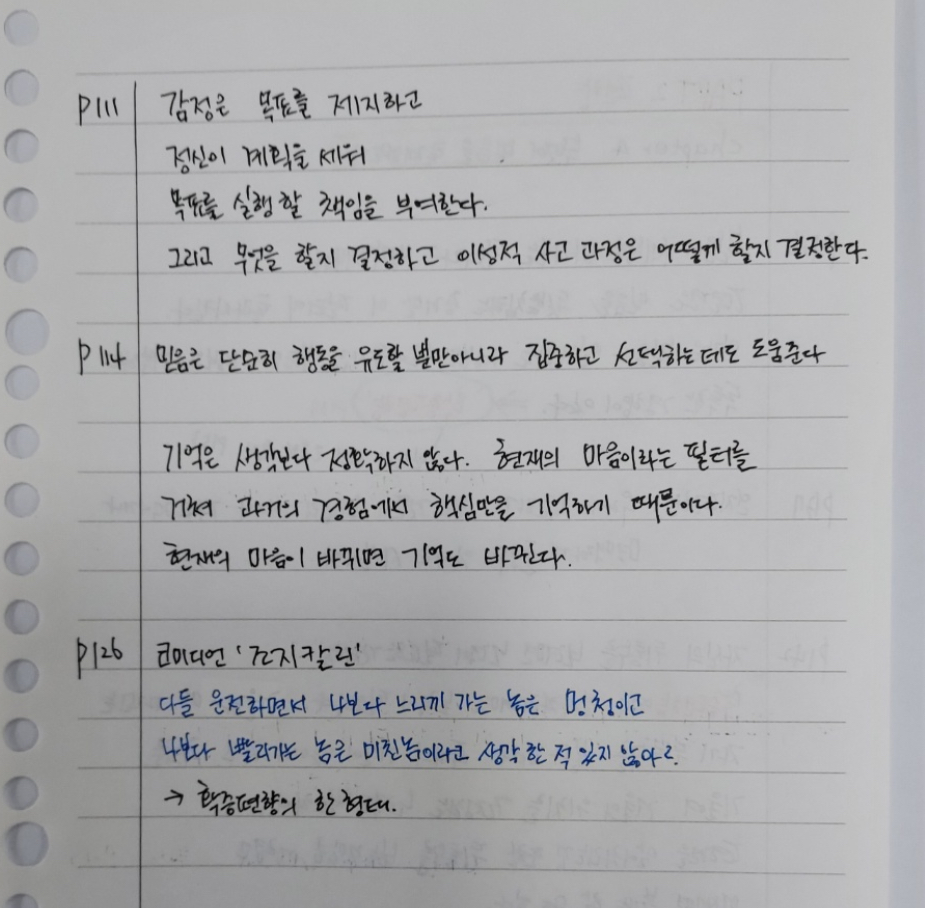 p111 감정은 목표를 제지하고
정신이 계획을 세워
목표를 실행할 책임을 부여한다.
그리고 무엇을 할지 결정하고 이성적 사고 과정은 어떻게 할지 결정한다.
p114 믿음은 단순히 행동을 유도할 뿐만아니라 집중하고 선택하는데도 도움준다
기억은 생각보다 정확하지 않다. 현재의 마음이라는 필터를
거쳐 과거의 경험에서 핵심만을 기억하기 때문이다.
현재의 마음이 바뀌면 기억도 바뀐다.
p126 코미디언 '조지칼린'
다들 운전하면서 나보다 느리게 가는 놈은 멍청이고
나보다 빨리가는 놈은 미친놈이라고 생각한 적 있지 않아?
→ 확증편향의 한 형태.